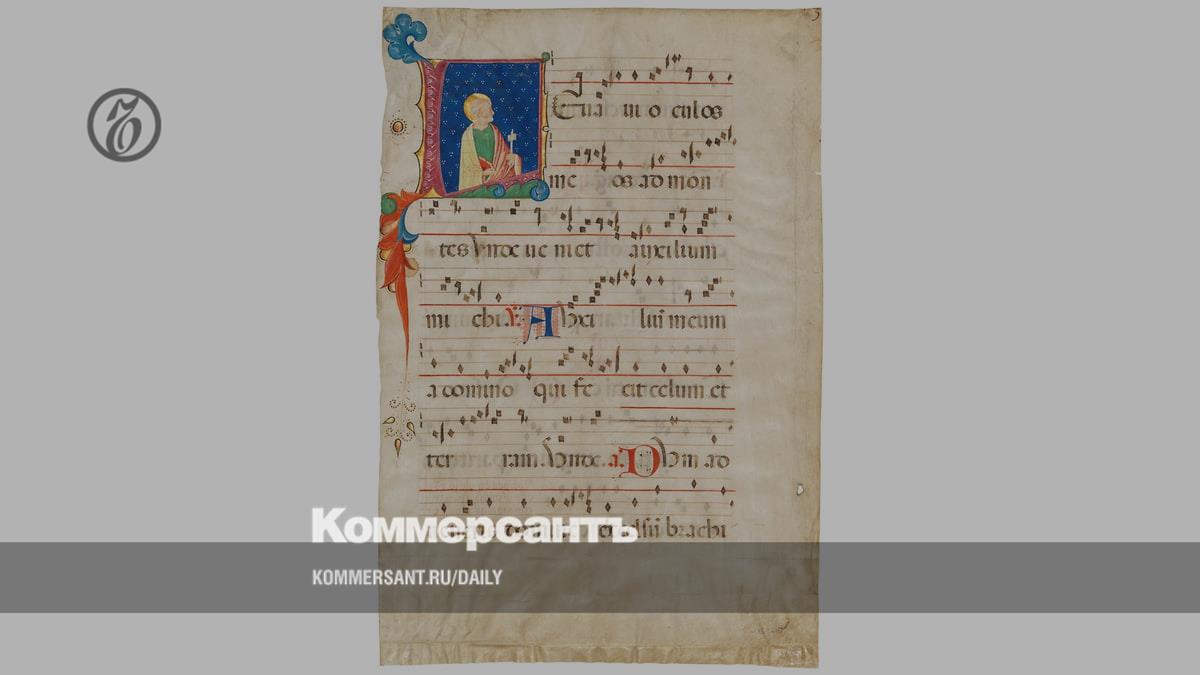 Ъ
Eua ui o culos
me os ad mon
tes Vnde ue niet auxilium
mi chi. V. Auxi liū meum
a domino qui fe cit celum et
ter ram. Vnde. a. Dum ad
brachi
Коммерсантъ
KOMMERSANT.RU/DAILY